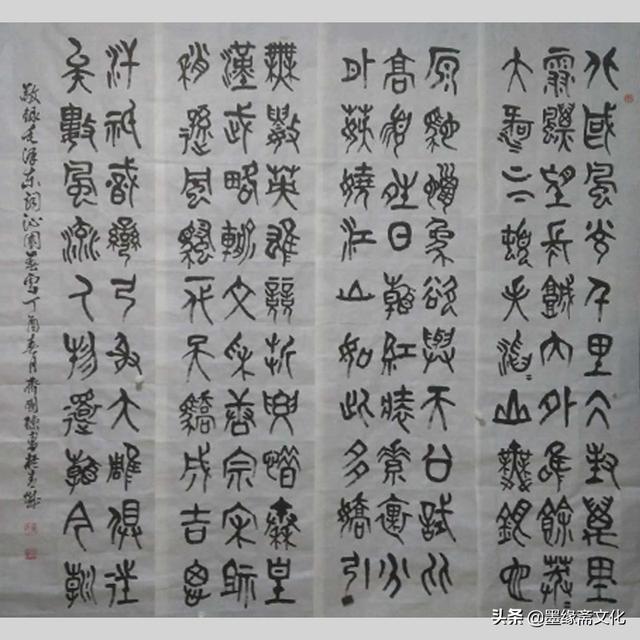 北國風光千里冰封萬里
雪飄望長城內外唯餘莽
大河上下頓失滔滔山舞銀蛇
原馳蠟象欲與天公試比
高須晴日看紅裝素裹分
外妖嬈江山如此多嬌引
無數英雄競折腰惜秦皇
漢武略輸文采唐宗宋祖
稍遜風騷一代天驕成吉思
汗祇識彎弓射大雕俱往
矣數風流人物還看今朝
敬錄毛澤東詞沁園春雪丁酉春月
头条 @墨缘斋文化